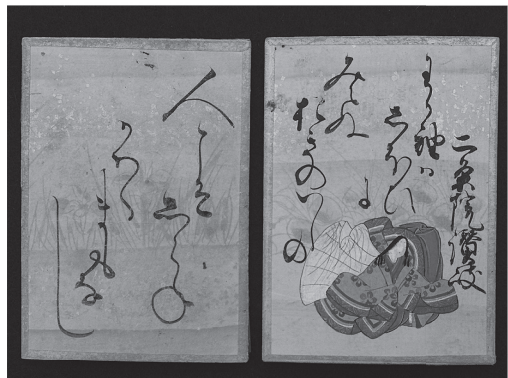 二条院讃岐
わか袖ハ
しほひに
みえぬ
おきのいしの
人こそ
しらね
かわく
まもな
し